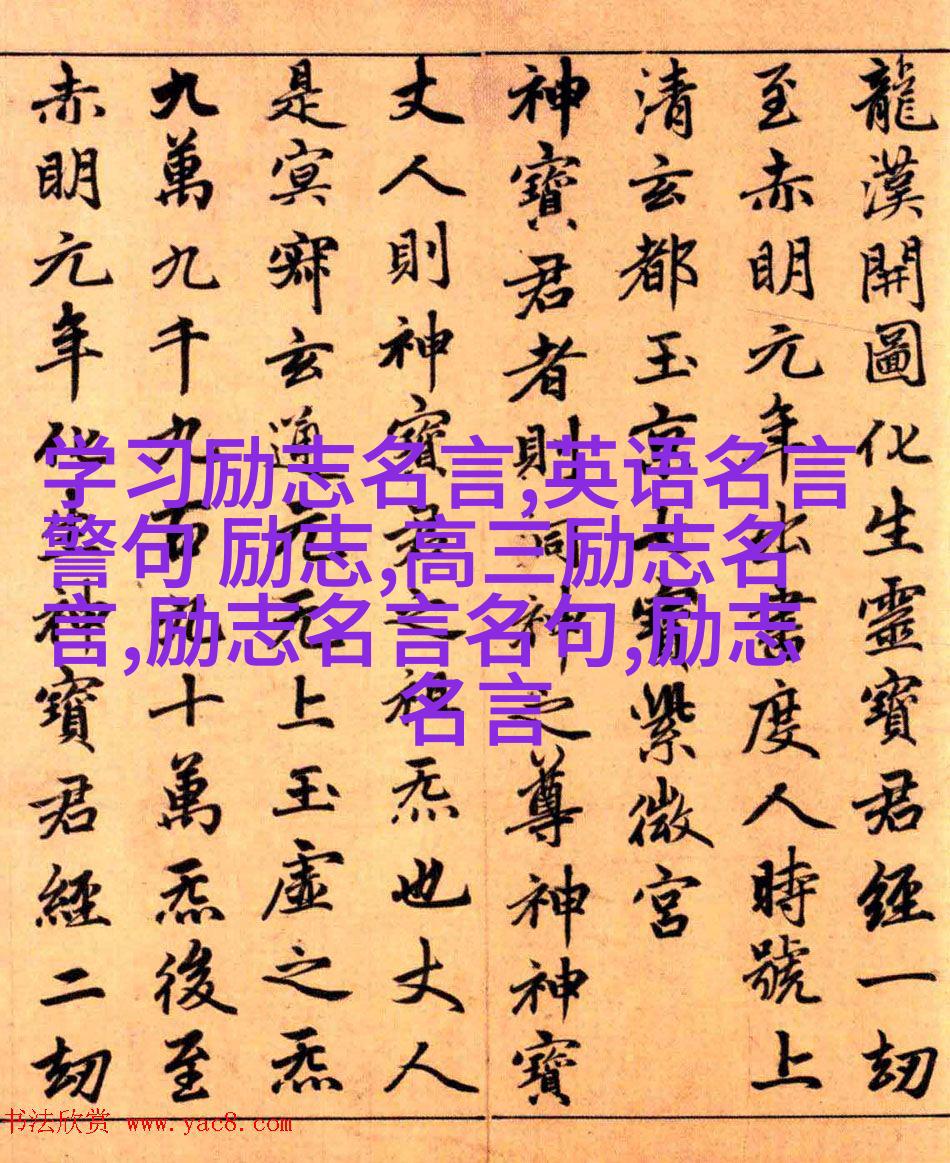 龍漢開圖化生靈寶君經一劫
至赤明元年出書度人時號上
清玄都玉京七寶紫微宮
神寶君者則洞神之尊神神寶
丈人則神寶君之祖炁也丈人
是冥寂玄通元无上玉虛之炁
九萬九千九百九十萬炁後至
赤明元年化生神寶君經二劫
学习励志名言,英语名言
警句 励志,高三励志名
言,励志名言名句,励志
名言
书法欣赏 www.yac8.com